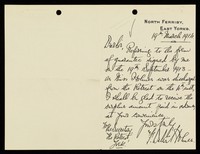 North Ferriby,
East Yorks.
19th March 1914
Dear Sir,
Referring to the form
of guarantee signed by me
on the 19th September 1913 —
as Miss Holmes was discharged
from the Retreat on the 6th inst.
I shall be glad to receive the
surplus amount paid in advance
at your convenience.
Yours faithfully
The Secretary
The Retreat
York